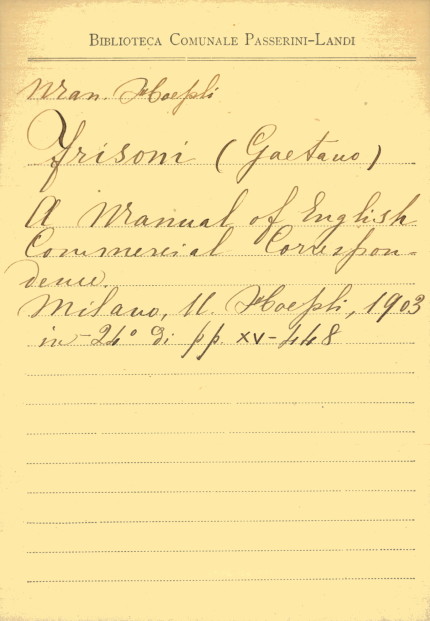 BIBLIOTECA COMUNALE PASSERINI-LANDI
Man. Hoepli
Frisoni (Gaetano)
A Manual of English
Commercial Correspon-
dence.
Milano, U. Hoepli, 1903
in-24° di pp. XV-448